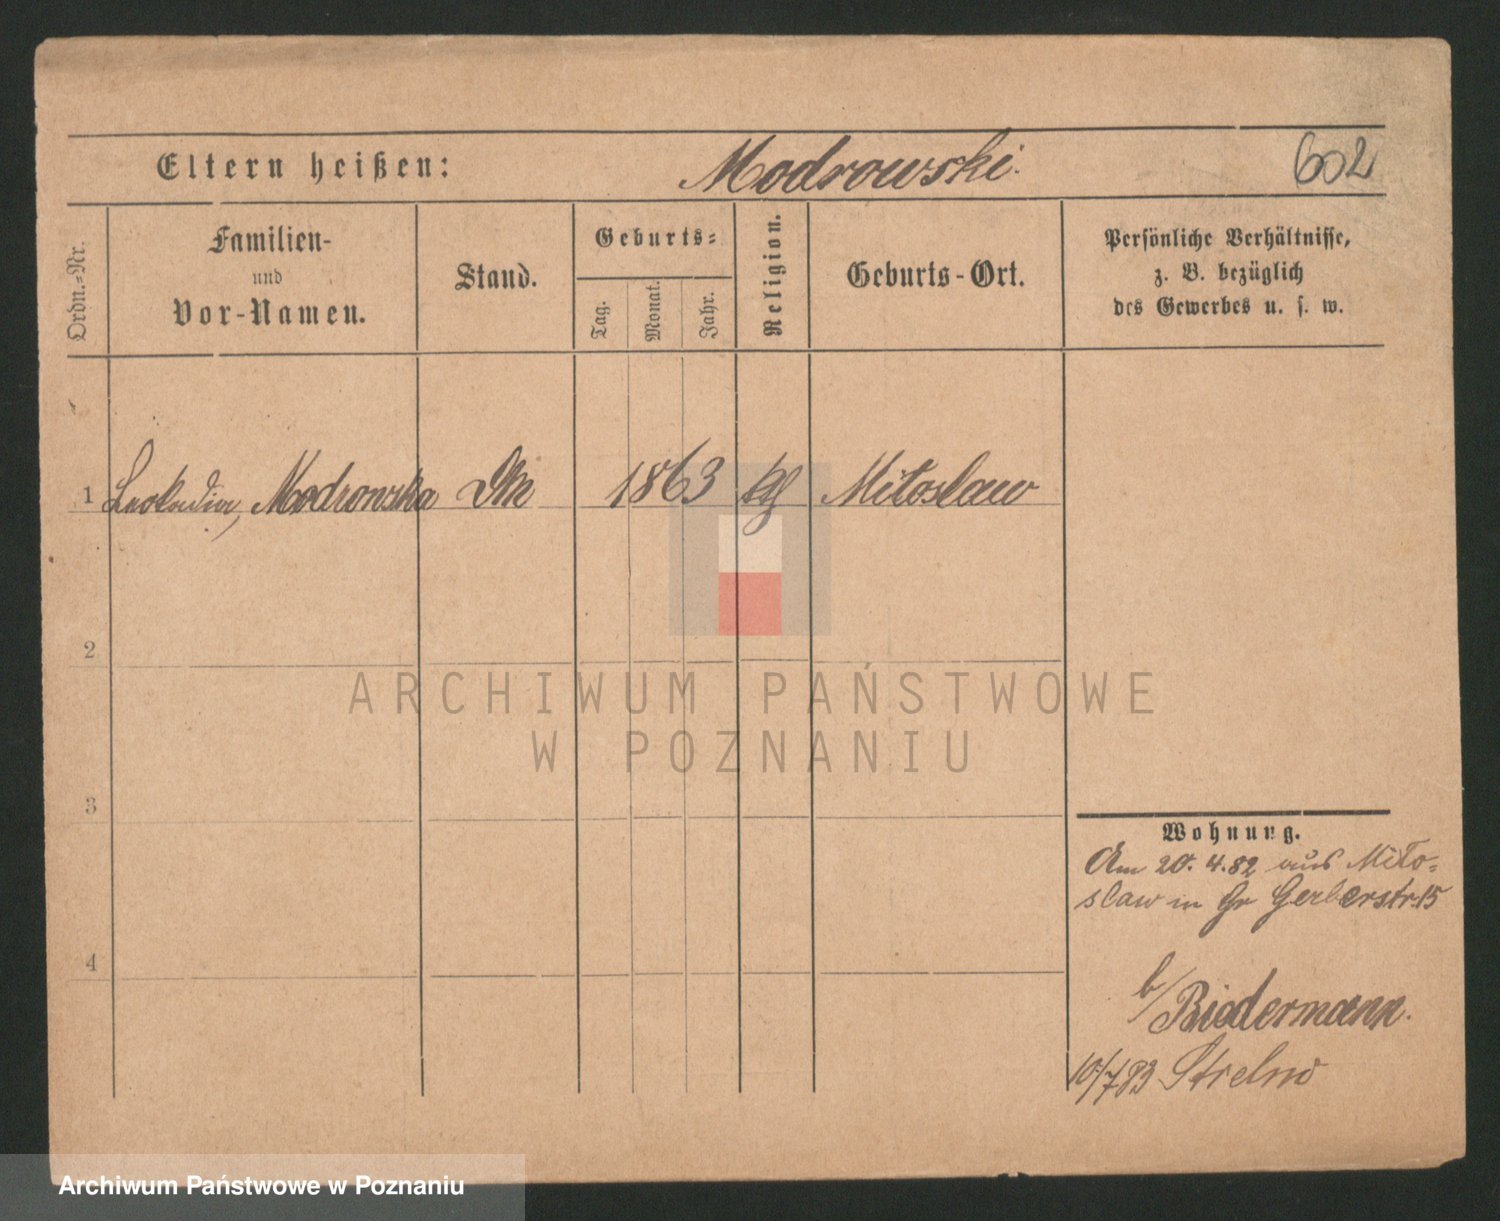 Eltern heißen: Modrowski. 602
Ordn.-Nr.
Familien-
und
Vor-Namen.
Stand.
Geburts-
Tag.
Monat.
Jahr.
Religion.
Geburts-Ort.
Persönliche Verhältnisse,
z. B. bezüglich
des Gewerbes u. s. w.
1 Leokadia, Modrowska 1863 Miloslaw
2
3
4
ARCHIWUM PAŃSTWOWE
W POZNANIU
Wohnung.
Am 20.4.82 aus Milo-
slaw in Gr Gerberstr. 15
b/ Biedermann.
10/7 83 Strelno
Archiwum Państwowe w Poznaniu